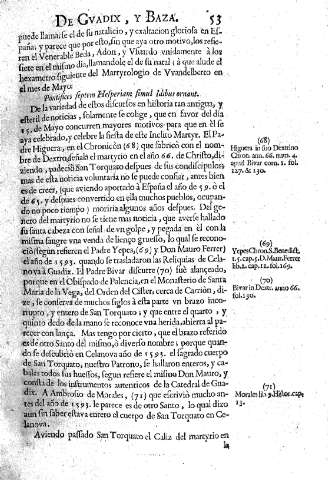 DE GVADIX, Y BAZA. 53
puede llamarse el de su natalicio, y exaltacion gloriosa en Es-
paña; y parece que por esto, sin que aya otro motivo, los refie-
ren el Venerable Beda, Adon, y Vsuardo vnidamente à los
siete en el mismo dia, llamandole el de su natal; à que alude el
hexametro siguiente del Martyrologio de Vvandelberto en
el mes de Mayo:
Pontifices septem Hesperiam simul Idibus ornant.
De la variedad de estos discursos en historia tan antigua, y
esteril de noticias, solamente se colige, que en favor del dia
15. de Mayo concurren mayores motivos para que en èl se
aya celebrado, y celebre la fiesta de este Inclito Martyr. El Pa-
dre Higuera, en el Chronicòn (68) que fabricò con el nom-
bre de Dextro, señala el martyrio en el año 66. de Christo, di-
ziendo, padeciò San Torquato despues de sus condiscipulos
mas de esta noticia voluntaria no se puede confiar, antes bien
es de creer, (que aviendo aportado à España el año de 59. ò el
de 65. y despues convertido en ella muchos pueblos, ocupan-
do no poco tiempo) moriria algunos años despues. Del ge-
nero del martyrio no se tiene mas noticia, que averle hallado
su santa cabeza con señal de vn golpe, y pegada en èl con la
misma sangre vna venda de lienço gruesso, lo qual se recono-
ciò segun refieren el Padre Yepes, (69) y Don Mauro Ferrer
el año de 1593. quando se trasladaron las Reliquias de Cela-
nova à Guadix. El Padre Bivar discurre (70) fuè alançeado,
porque en el Obispado de Palencia, en el Monasterio de Santa
Maria de la Vega, del Orden del Cister, cerca de Carriòn, di-
ze, se conserva de muchos siglos à esta parte vn brazo incor-
rupto, y entero de San Torquato; y que entre el quarto, y
quinto dedo de la mano se reconoce vna herida, abierta al pa-
recer con lança. Mas tengo por cierto, que el brazo referido
es de otro Santo del mismo, ò diverso nombre; porque quan-
do se descubriò en Celanova año de 1593. el sagrado cuerpo
de San Torquato, nuestro Patrono, se hallaron enteros, y ca-
bales todos sus huessos, segun refiere el mismo Don Mauro, y
consta de los instrumentos autenticos de la Catedral de Gua-
dix. A Ambrosio de Morales, (71) que escriviò mucho an-
tes del año de 1593. le parece es de otro Santo, lo qual dixo
aun sin saber estava entero el cuerpo de San Torquato en Ce-
lanova.
Aviendo passado San Torquato el Caliz del martyrio en
la
(68)
Higuera in suo Dextrino
Chron. ann. 66. num. 4.
apud Bivar com. 1. fol.
127. & 130.
(69)
Yepes Chron. S. Benedict.
t. 5. cap. 5. D. Maur. Ferrer
lib. 2. cap. 12. fol. 169.
(70)
Bivar in Dextr. anno 66.
fol. 130.
(71)
Morales lib. 9. Histor. cap.
13.